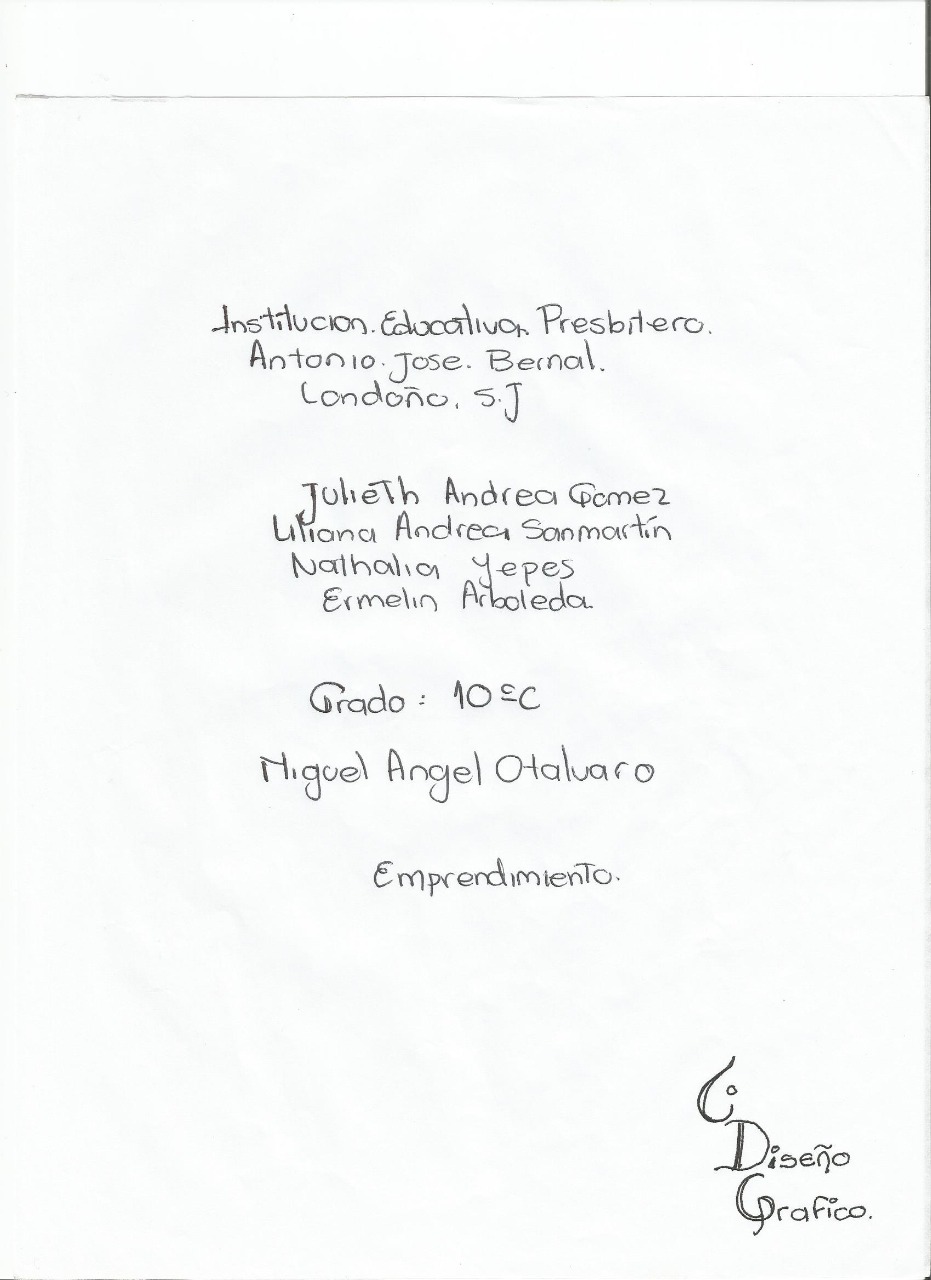 Institucion. Educativa Presbitero.
Antonio. Jose. Bernal.
Londoño. S.J
Julieth Andrea Gomez
Liliana Andrea Sanmartín
Nathalia Yepes
Ermelin Arboleda.
Grado: 10ºC
Miguel Angel Otalvaro
Emprendimiento.
Diseño
Grafico.